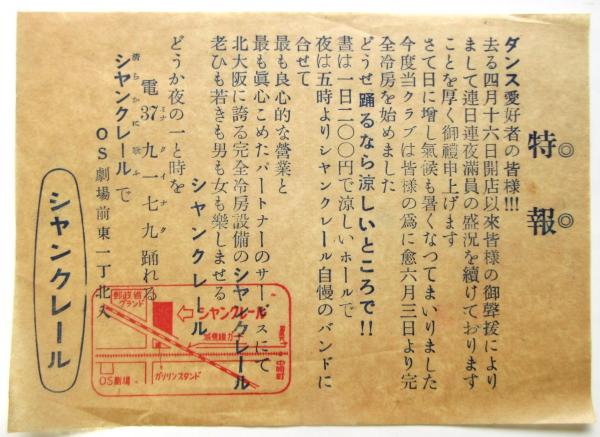 ◎特報◎
ダンス愛好者の皆様!!!
去る四月十六日開店以來皆様の御聲援により
まして連日連夜滿員の盛況を續けております
ことを厚く御禮申上げます
さて日に增し氣候も暑くなつてまいりました
今度当クラブは皆様の爲に愈六月三日より完
全冷房を始めました
どうせ踊るなら涼しいところで!!
晝は一日二〇〇円で涼しいホールで
夜は五時よりシャンクレール自慢のバンドに
合せて
最も良心的な營業と
最も眞心こめたパートナーのサービスにて
北大阪に誇る完全冷房設備のシヤンクレール
老ひも若きも男も女も樂しませる
シヤンクレール
どうか夜の一と時を
電37九一七九踊れる
ミナ クイナク
シヤンクレールで
清らかに
OS劇場前東一丁北入
シャンクレール
郵政省
グランド
シャンクレール
OS劇場
ガソリンスタンド